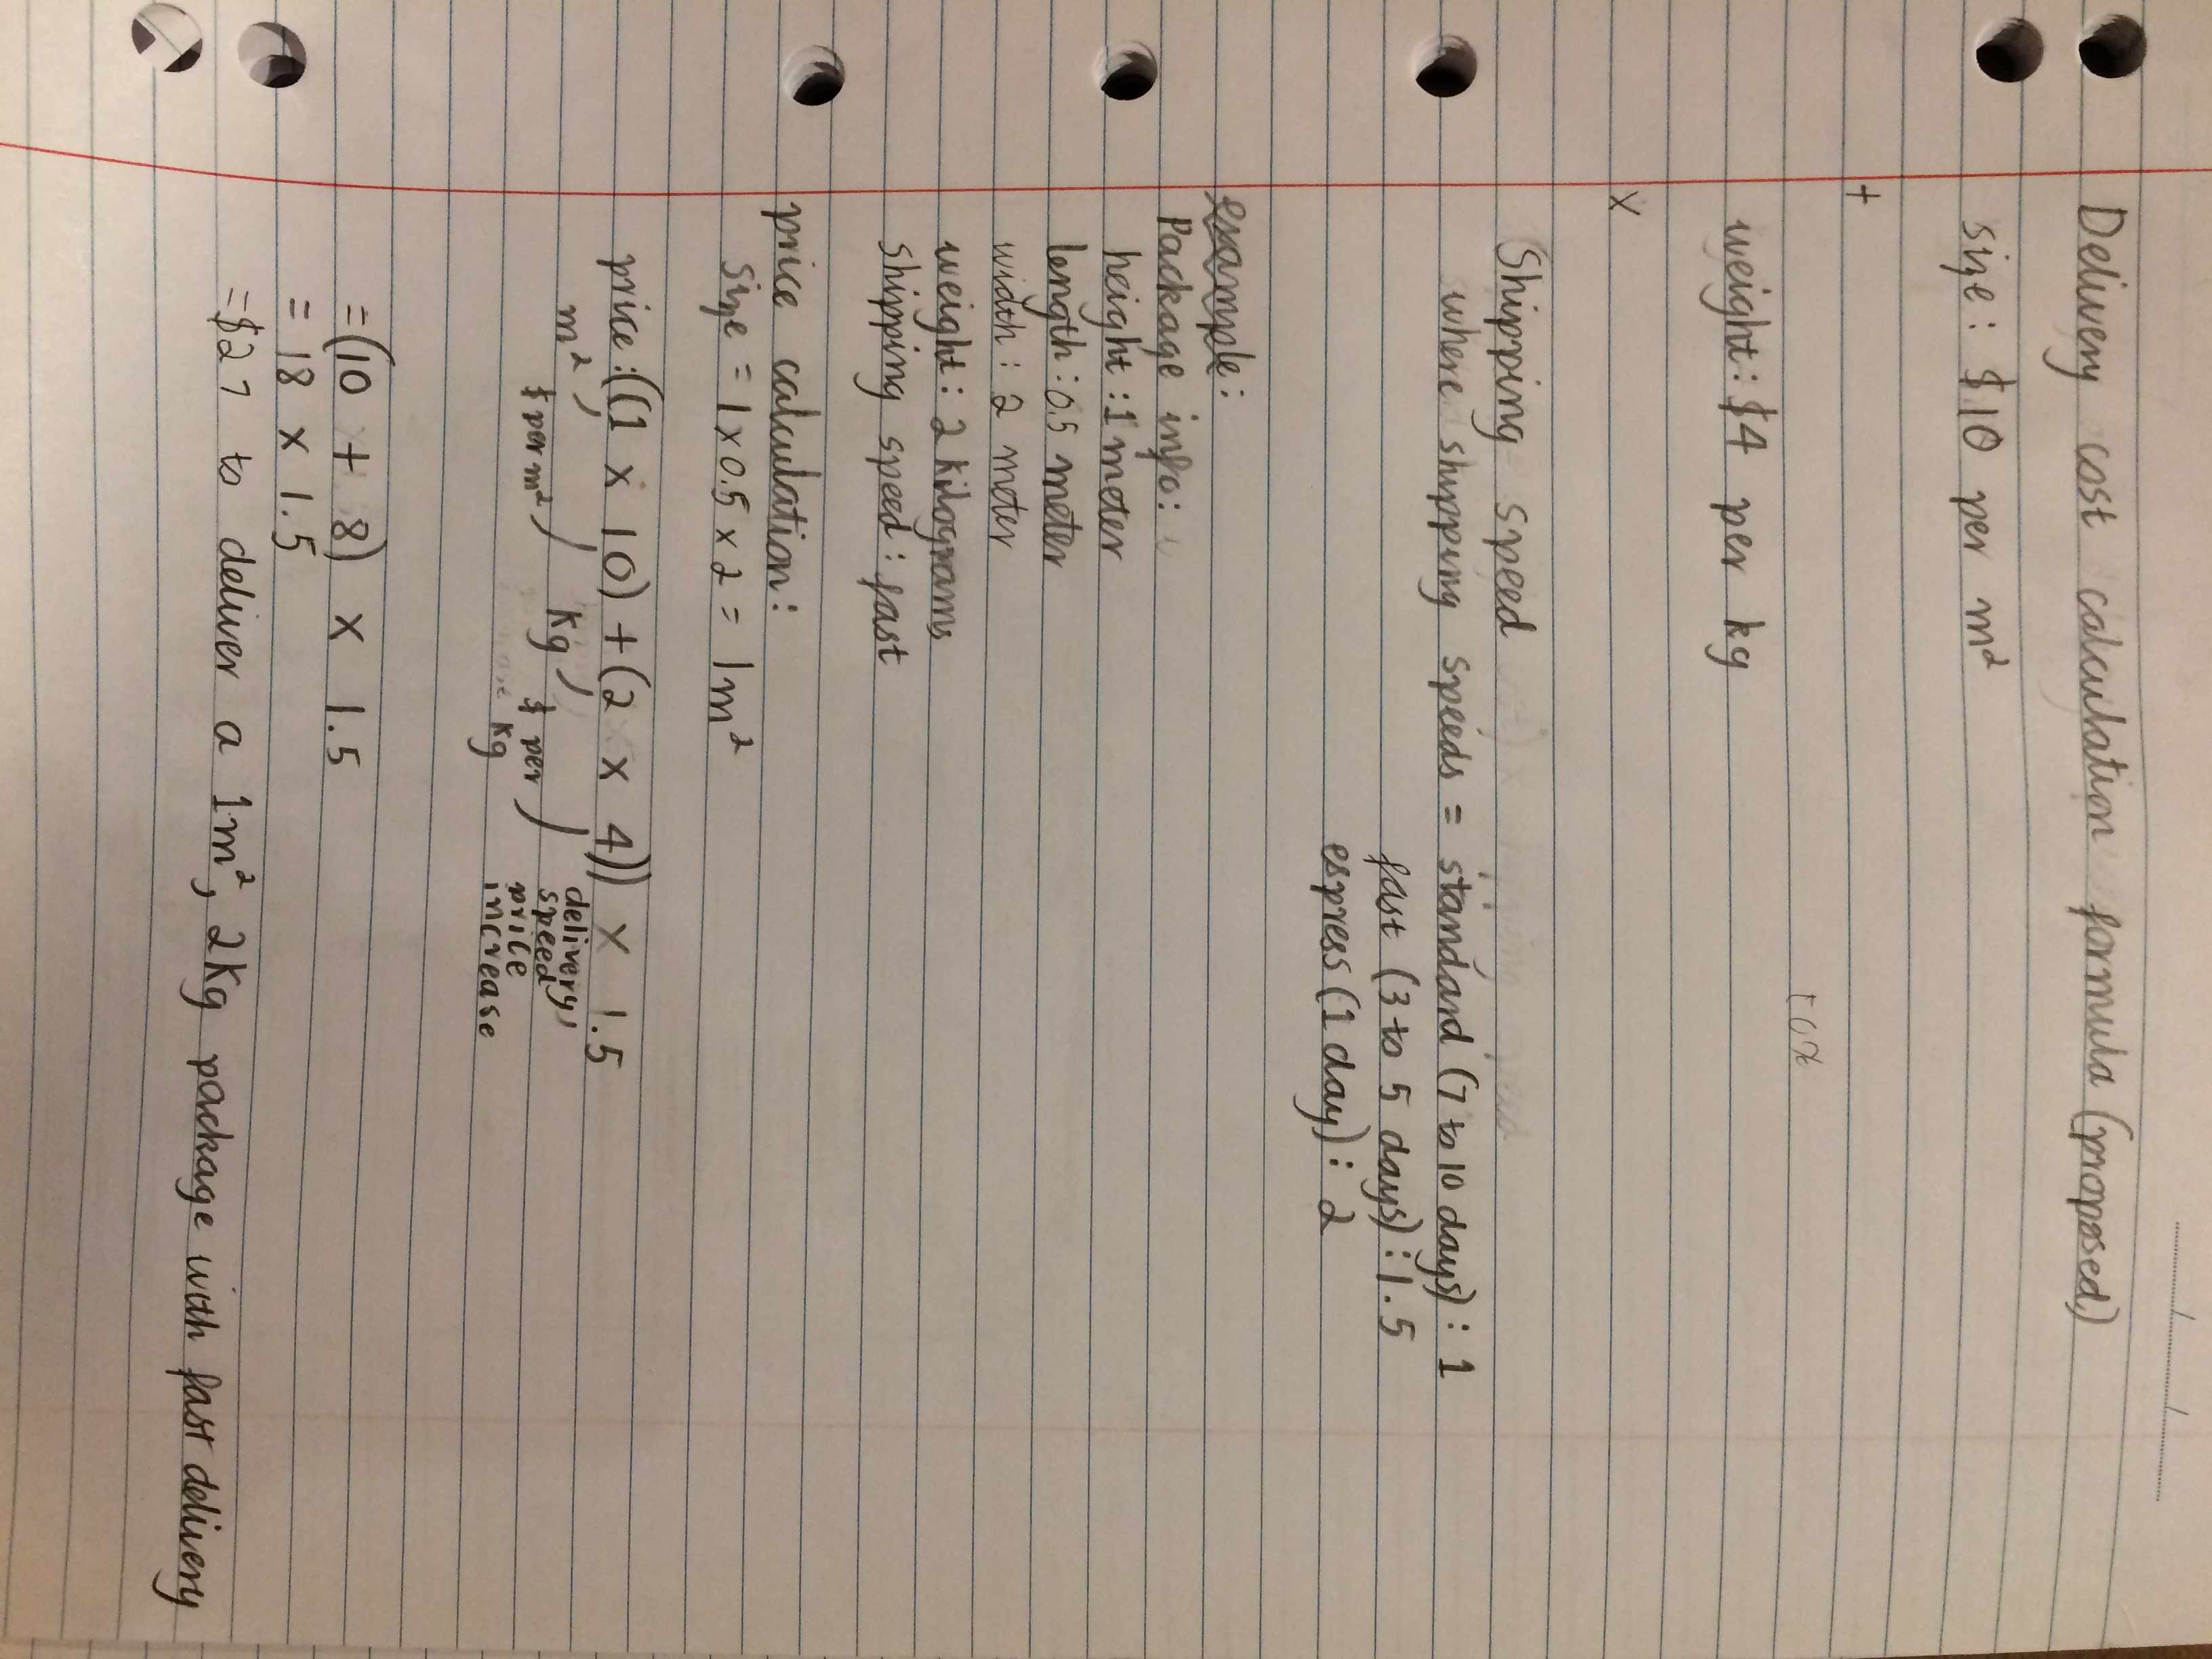 Delivery cost calculation formula (proposed)
size: $10 per m²
+
weight: $4 per kg
x
Shipping speed
where shipping speeds = standard (7 to 10 days): 1
fast (3 to 5 days): 1.5
espress (1 day): 2
example:
Package info:
height: 1 meter
length: 0.5 meter
width: 2 meter
weight: 2 kilograms
shipping speed: fast
price calculation:
size = 1 x 0.5 x 2 = 1m²
price: ((1 x 10) + (2 x 4)) x 1.5
m², $ per m² / kg, $ per kg / delivery, speed price increase
= (10 + 8) x 1.5
= 18 x 1.5
= $27 to deliver a 1m², 2Kg package with fast delivery